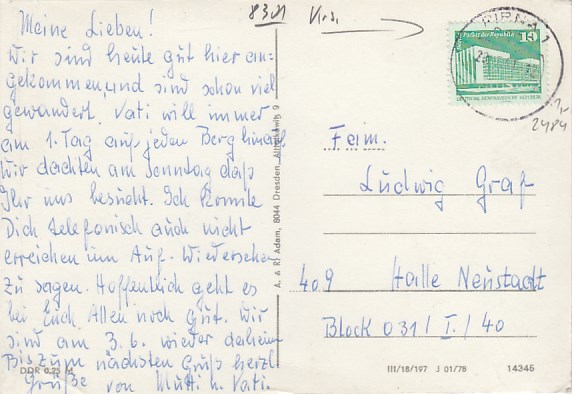 Meine Lieben!
Wir sind heute gut hier an-
gekommen, und sind schon viel
gewandert. Vati will immer
am 1. Tag auf jeden Berg hinauf
Wir dachten am Sonntag daß
Ihr uns besucht. Ich konnte
Dich telefonisch auch nicht
erreichen um Auf-Wiedersehen
zu sagen. Hoffentlich geht es
bei Euch Allen noch gut. Wir
sind am 3.6. wieder daheim
Bis zum nächsten Gruß herzl.
Grüße von Mutti u. Vati.
DDR 0,25 M
A. & R. Adam, 8044 Dresden, Altlockwitz 9
8301
PIRNA 1
Palast der Republik 10
DEUTSCHE DEMOKRATISCHE REPUBLIK
2484
Fam.
Ludwig Graf
409 Halle Neustadt
Block 031/I./40
III/18/197 J 01/78 14345